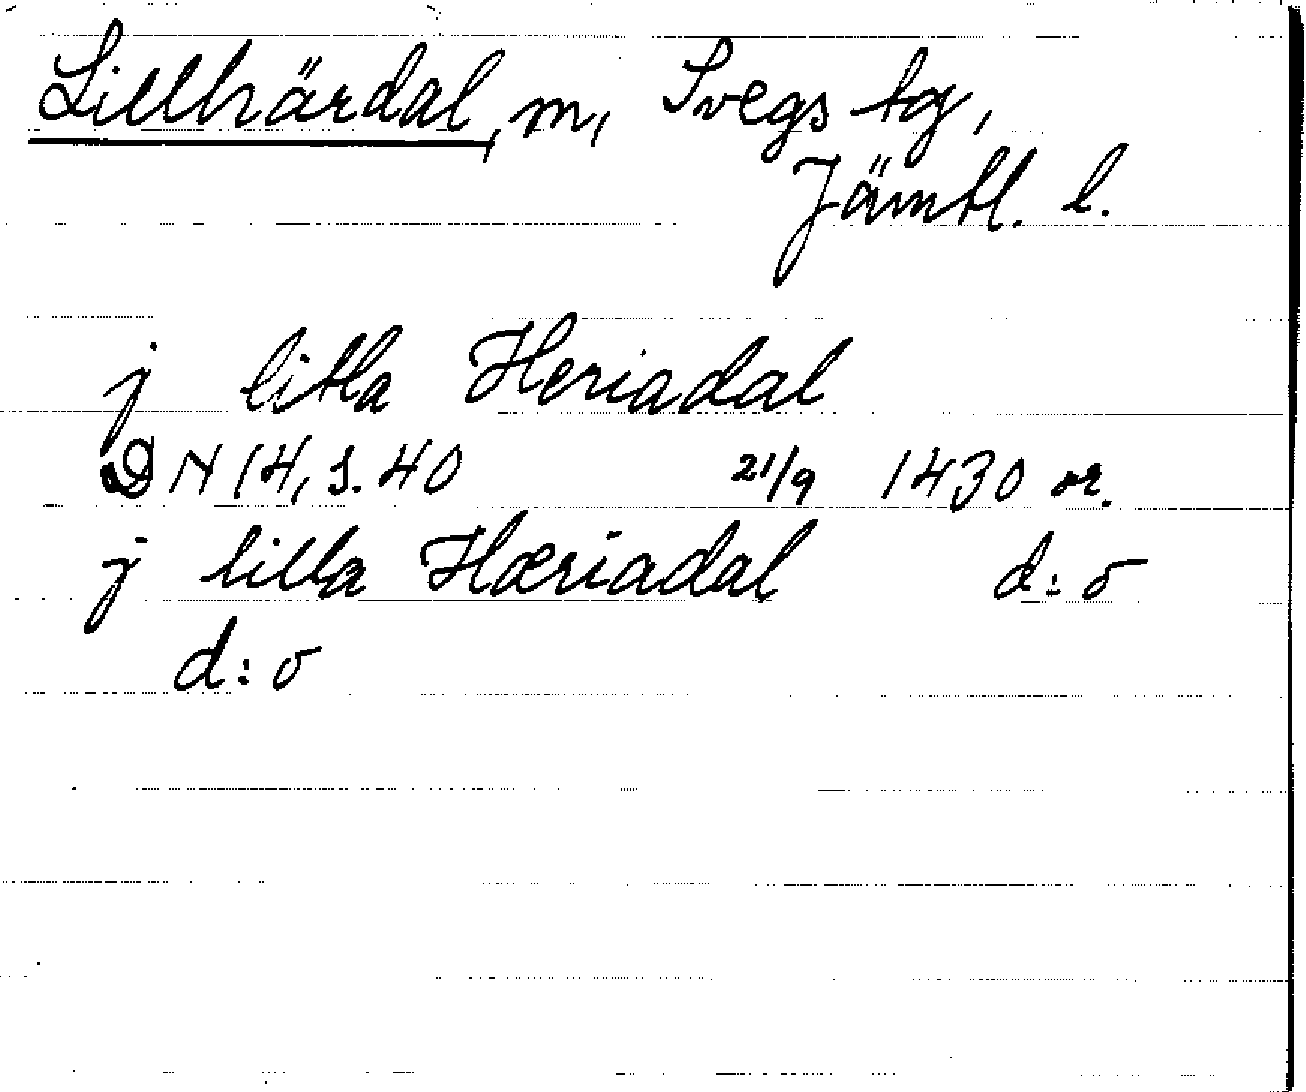 Lillhärdal, m, Svegs tg,
Jämtl. l.
j litla Heriadal
DN 14, s. 40 21/9 1430 or.
j lilla Hæriadal d:o
d:o